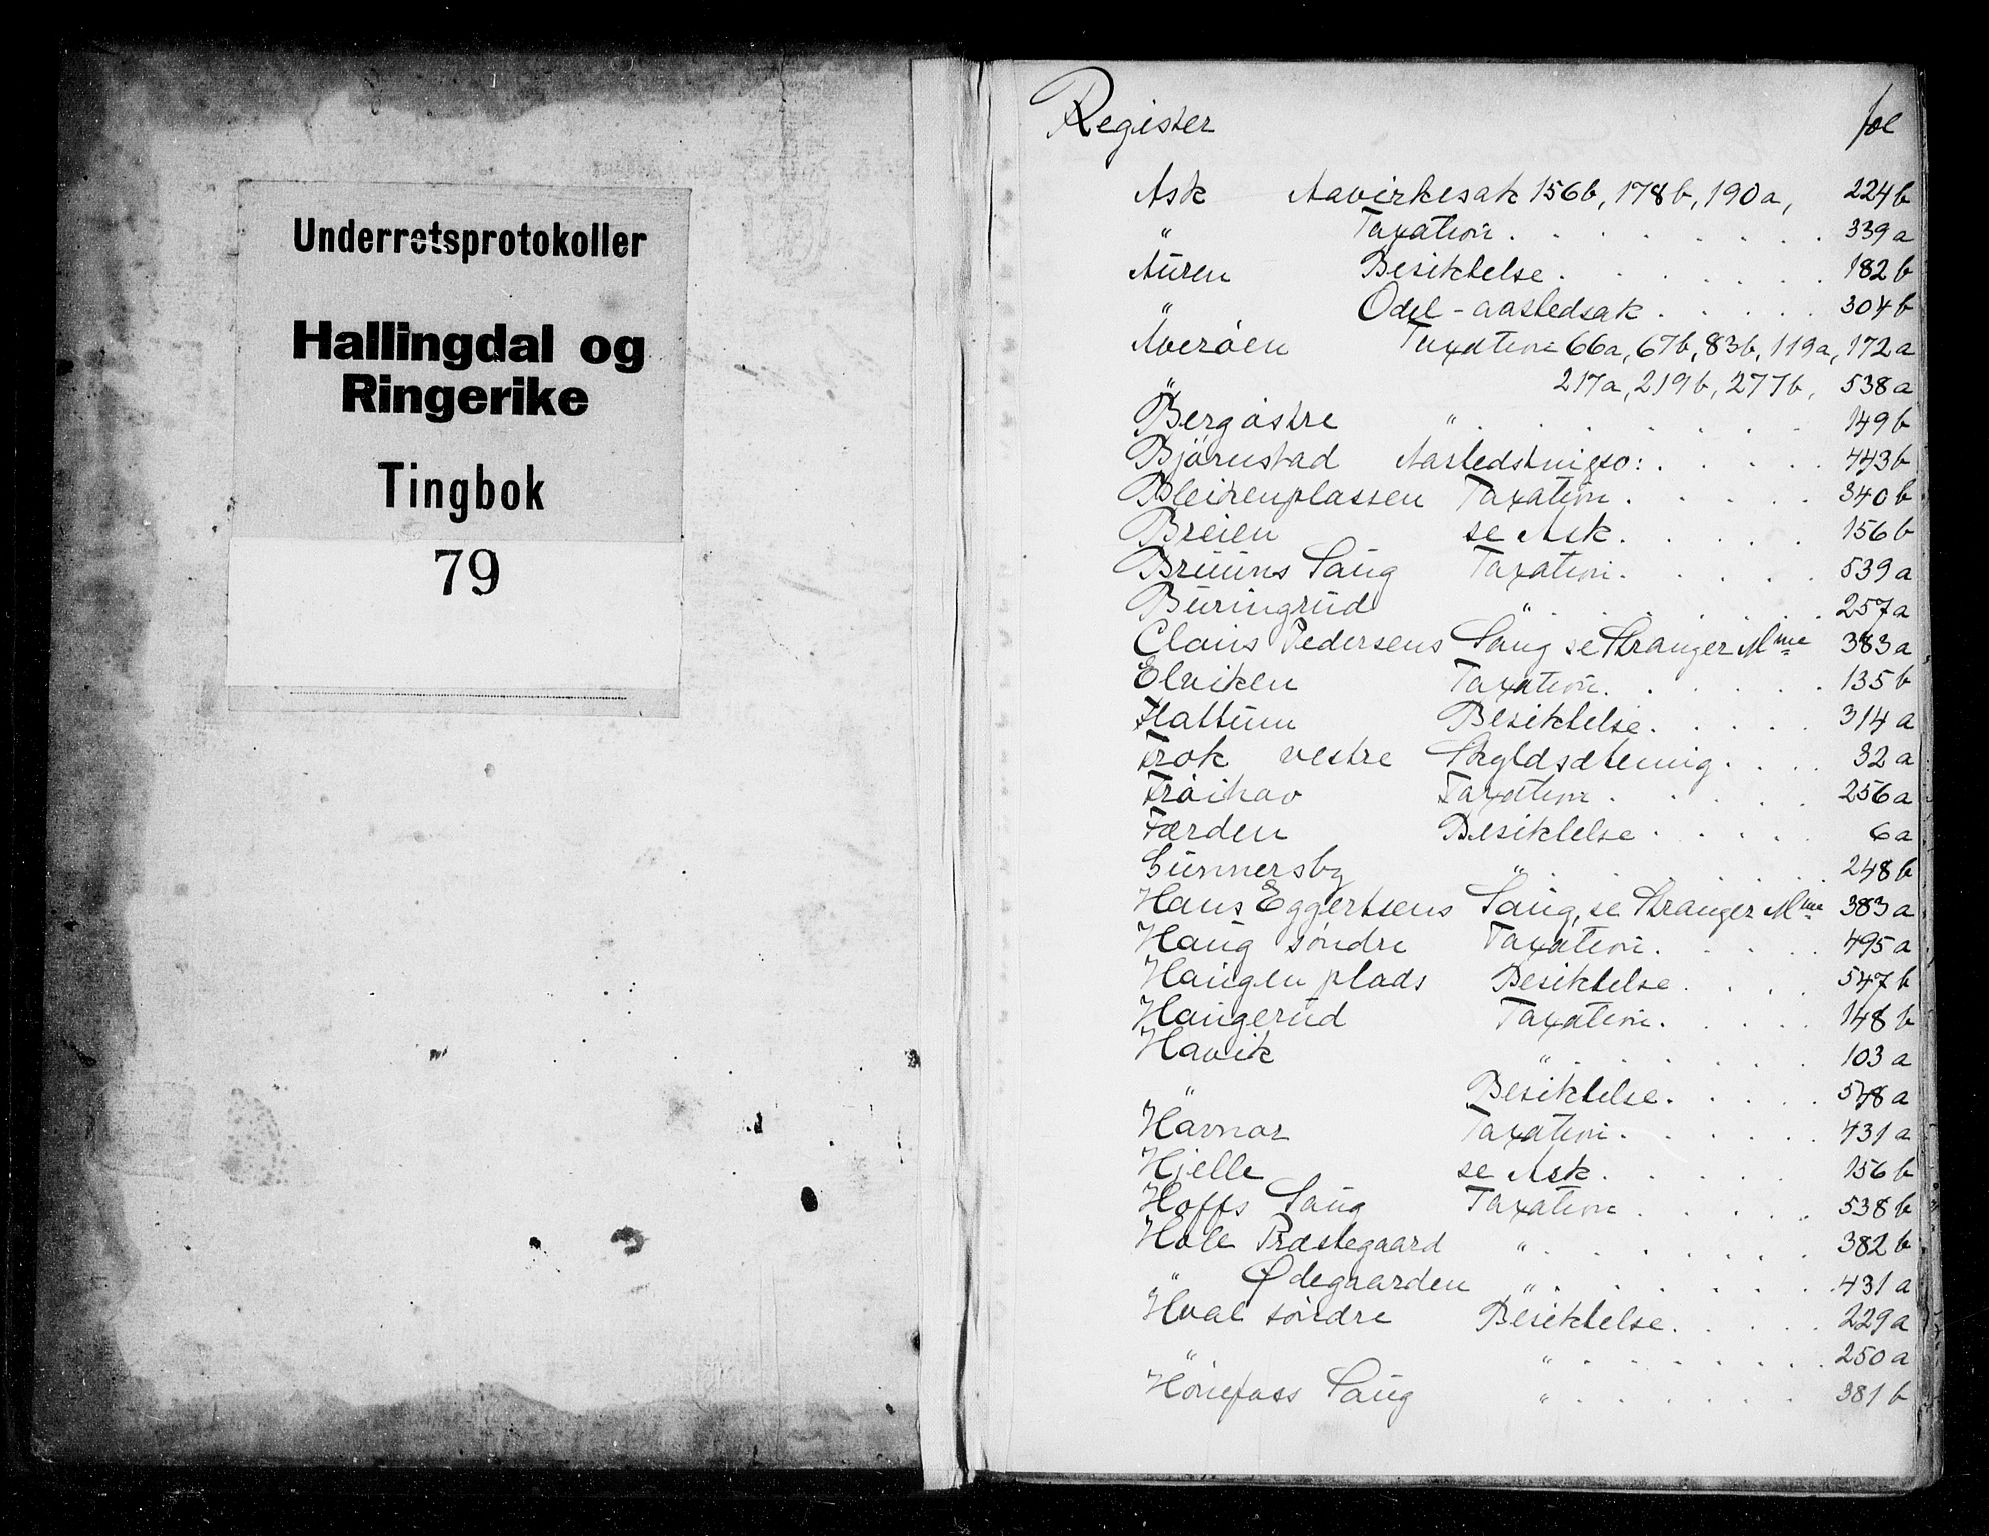 Underretsprotokoller
Hallingdal og
Ringerike
Tingbok
79
Register fol
Ask Aavirkesak 156b, 178b, 190a, 224b
" Taxation . . . . . . . . 339a
Auren Besiktelse . . . . . . 182b
" Odel-aastedsak . . . . . 304b
Averøen Taxation 66a, 67b, 83b, 119a, 172a
" 217a, 219b, 277b, 538a
Berg østre " . . . . . . . . 149b
Bjørnstad . . . . . 443b
Bleikenplassen Taxation . . . . . 340b
Breien se Ask . . . . . 156b
Bruuns Saug Taxation . . . . . 539a
Buringrud " . . . . . . . 257a
Claus Pedersens Saug se Stranger Mme 383a
Elviken Taxation . . . . . . 135b
Hattum Besiktelse . . . . . 314a
Frok vestre Skyldsætning . . . . 32a
Frøihov Taxation . . . . . 256a
Færden Besiktelse . . . . . 6a
Gunnersby " . . . . . . . . 248b
Hans Eggertsens Saug, se Stranger Mme 383a
Haug søndre Taxation . . . . . 495a
Haugen plads Besiktelse . . . . 547b
Haugerud Taxation . . . . . 148b
Havik " . . . . . . . 103a
" Besiktelse . . . . . 548a
Havnor Taxation . . . . . . 431a
Hjelle se Ask . . . . . 156b
Hoffs Saug Taxation . . . . . 538b
Hole Præstegaard " . . . . . . . 382b
" Ødegaarden " . . . . . . . 431a
Hval søndre Besiktelse . . . . . 229a
" " . . . . . . . . 250a
Hønefoss Saug " . . . . . . . 381b